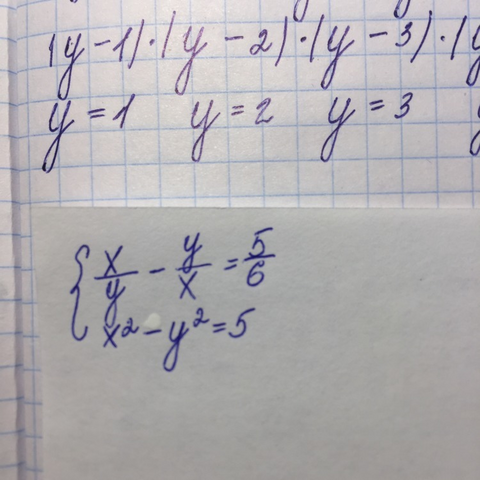 (y-1)·(y-2)·(y-3)·(y
y=1 y=2 y=3 y
{ x/y - y/x = 5/6
x²-y²=5